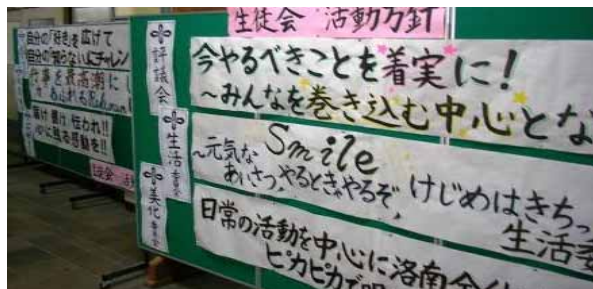 生徒会 活動方針
評議会
今やるべきことを着実に!
~みんなを巻き込む中心とな
生活委員会
Smile
~元気な
あいさつ、やるときゃやるぞ、けじめはきちっ
生活委
美化委員会
日常の活動を中心に洛南全体
ピカピカで
自分の「好き」を広げて
自分の「知らない」にチャレン
行事を最高潮に
あふれる
届け 響け 伝われ!!
心に残る感動を!!
生徒会 活